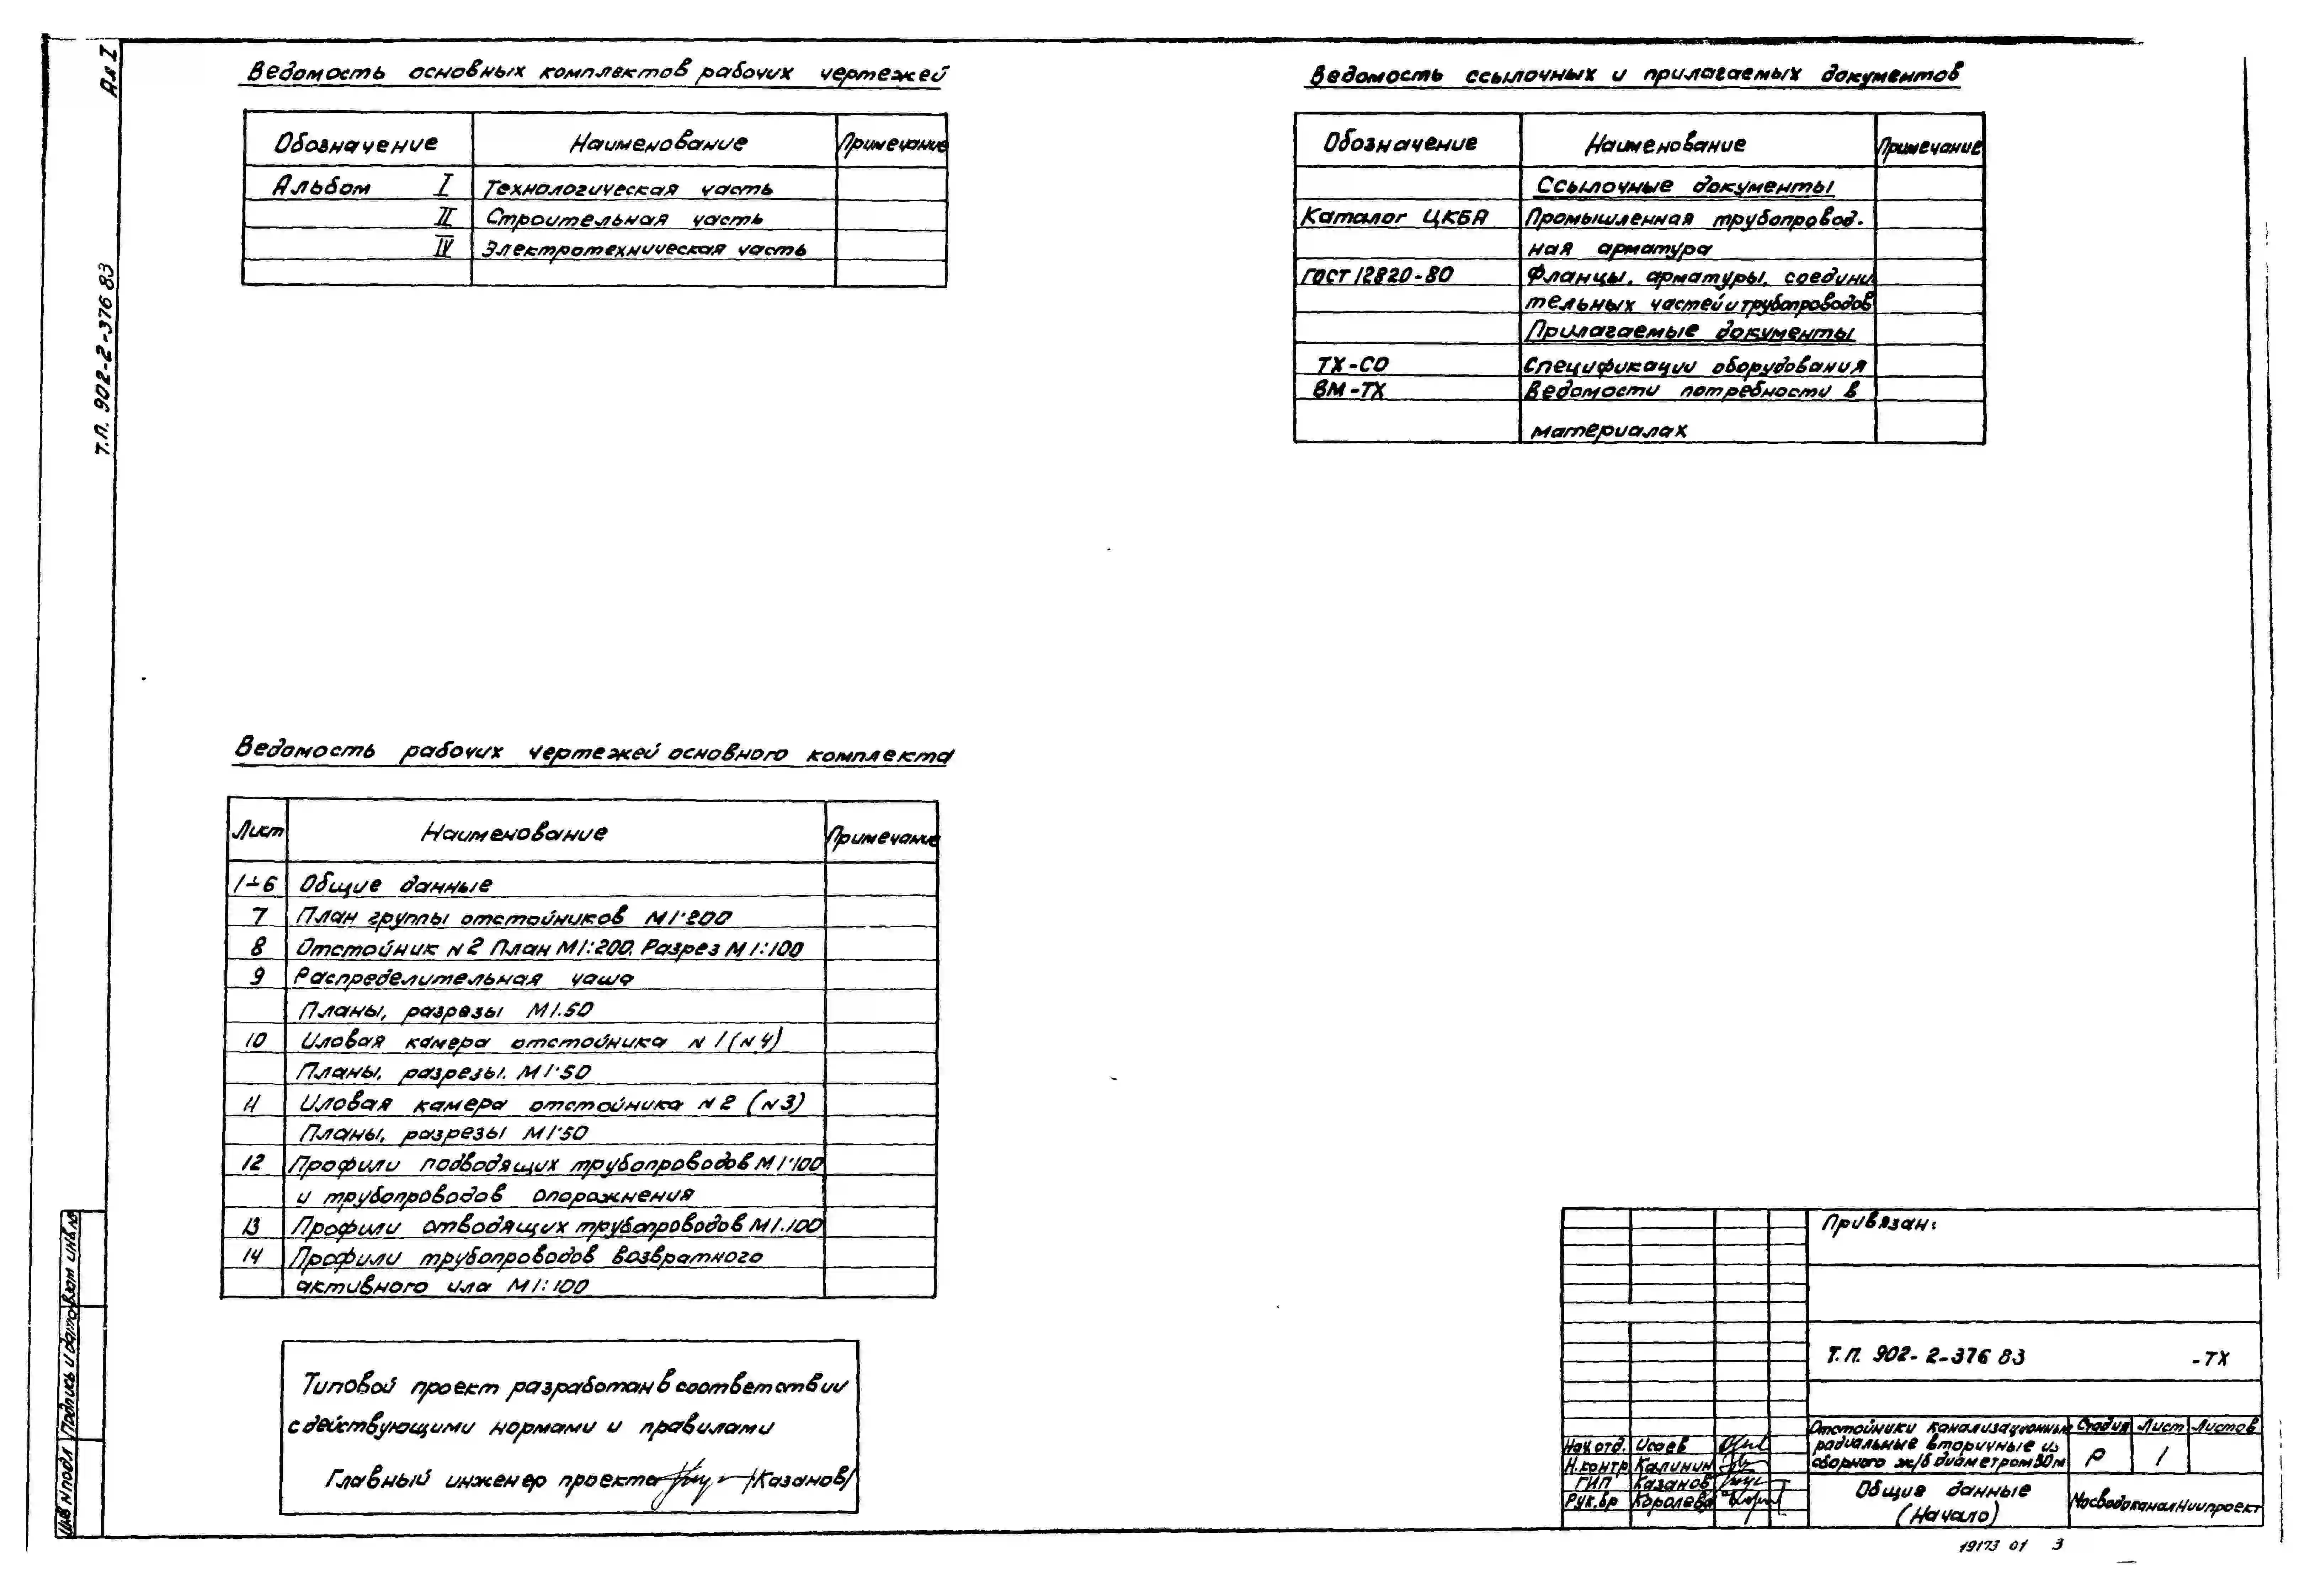 Ал I
Т.П. 902-2-376 83
Ведомость основных комплектов рабочих чертежей
Обозначение Наименование Примечание
Альбом I Технологическая часть
II Строительная часть
IV Электротехническая часть
Ведомость ссылочных и прилагаемых документов
Обозначение Наименование Примечание
Ссылочные документы
Каталог ЦКБА Промышленная трубопровод-
ная арматура
ГОСТ 12820-80 Фланцы, арматуры, соедини
тельных частей и трубопроводов
Прилагаемые документы
ТХ-СО Спецификации оборудования
ВМ-ТХ Ведомости потребности в
материалах
Ведомость рабочих чертежей основного комплекта
Лист Наименование Примечание
1÷6 Общие данные
7 План группы отстойников М1:200
8 Отстойник N2 План М1:200. Разрез М 1:100
9 Распределительная чаша
Планы, разрезы М1:50
10 Иловая камера отстойника N 1 (N4)
Планы, разрезы. М1:50
11 Иловая камера отстойника N2 (N3)
Планы, разрезы М1:50
12 Профили подводящих трубопроводов М1:100
и трубопроводов опорожнения
13 Профили отводящих трубопроводов М1:100
14 Профили трубопроводов возвратного
активного ила М1:100
Типовой проект разработан в соответствии
с действующими нормами и правилами
Главный инженер проекта /Казанов/
Инв N подл Подпись и дата Взам инв №
Привязан:
Т.П. 902-2-376 83 -ТХ
Отстойники канализационные
радиальные вторичные из
сборного ж/б диаметром 30м
Стадия Лист Листов
Р 1
Нач.отд. Исаев
Н.контр Калинин
ГИП Казанов
Рук.бр Королева
Общие данные
(Начало)
МосводоканалНиипроект
19173 01 3